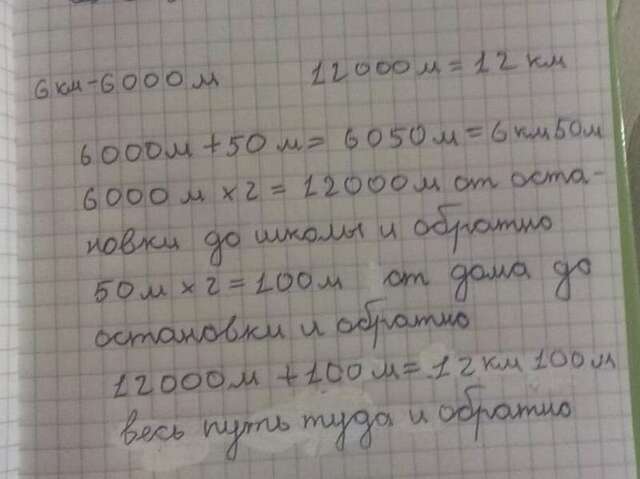 6 км - 6000 м 12000 м = 12 км
6000 м + 50 м = 6050 м = 6 км 50 м
6000 м × 2 = 12000 м от оста-
новки до школы и обратно
50 м × 2 = 100 м от дома до
остановки и обратно
12000 м + 100 м = 12 км 100 м
весь путь туда и обратно